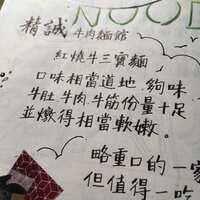 NOOD
精誠 牛肉麵館
紅燒牛三寶麵
口味相當道地、夠味
牛肚、牛肉、牛筋份量十足
並燉得相當軟嫩。
略重口的一家
但值得一吃